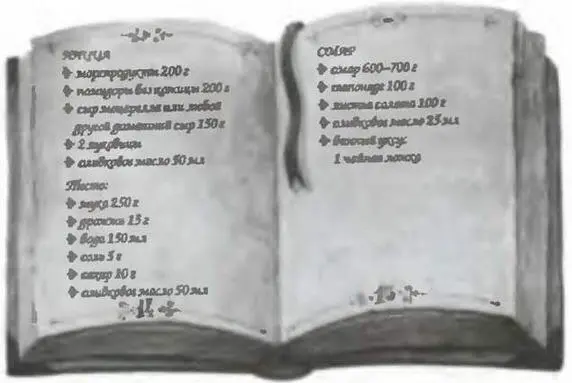 ПИЦЦА
морепродукты 200 г
помидоры без кожицы 200 г
сыр моцарелла или любой
другой домашний сыр 150 г
2 луковицы
оливковое масло 50 мл
Тесто:
мука 250 г
дрожжи 15 г
вода 150 мл
соль 5 г
сахар 10 г
оливковое масло 50 мл
14
ОМАР
омар 600–700 г
тапенаде 100 г
листья салата 100 г
оливковое масло 25 мл
винный уксус
1 чайная ложка
15